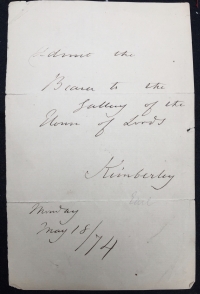 Admit the
Bearer to the
Gallery of the
House of Lords
Kimberley
Monday
May 18/74